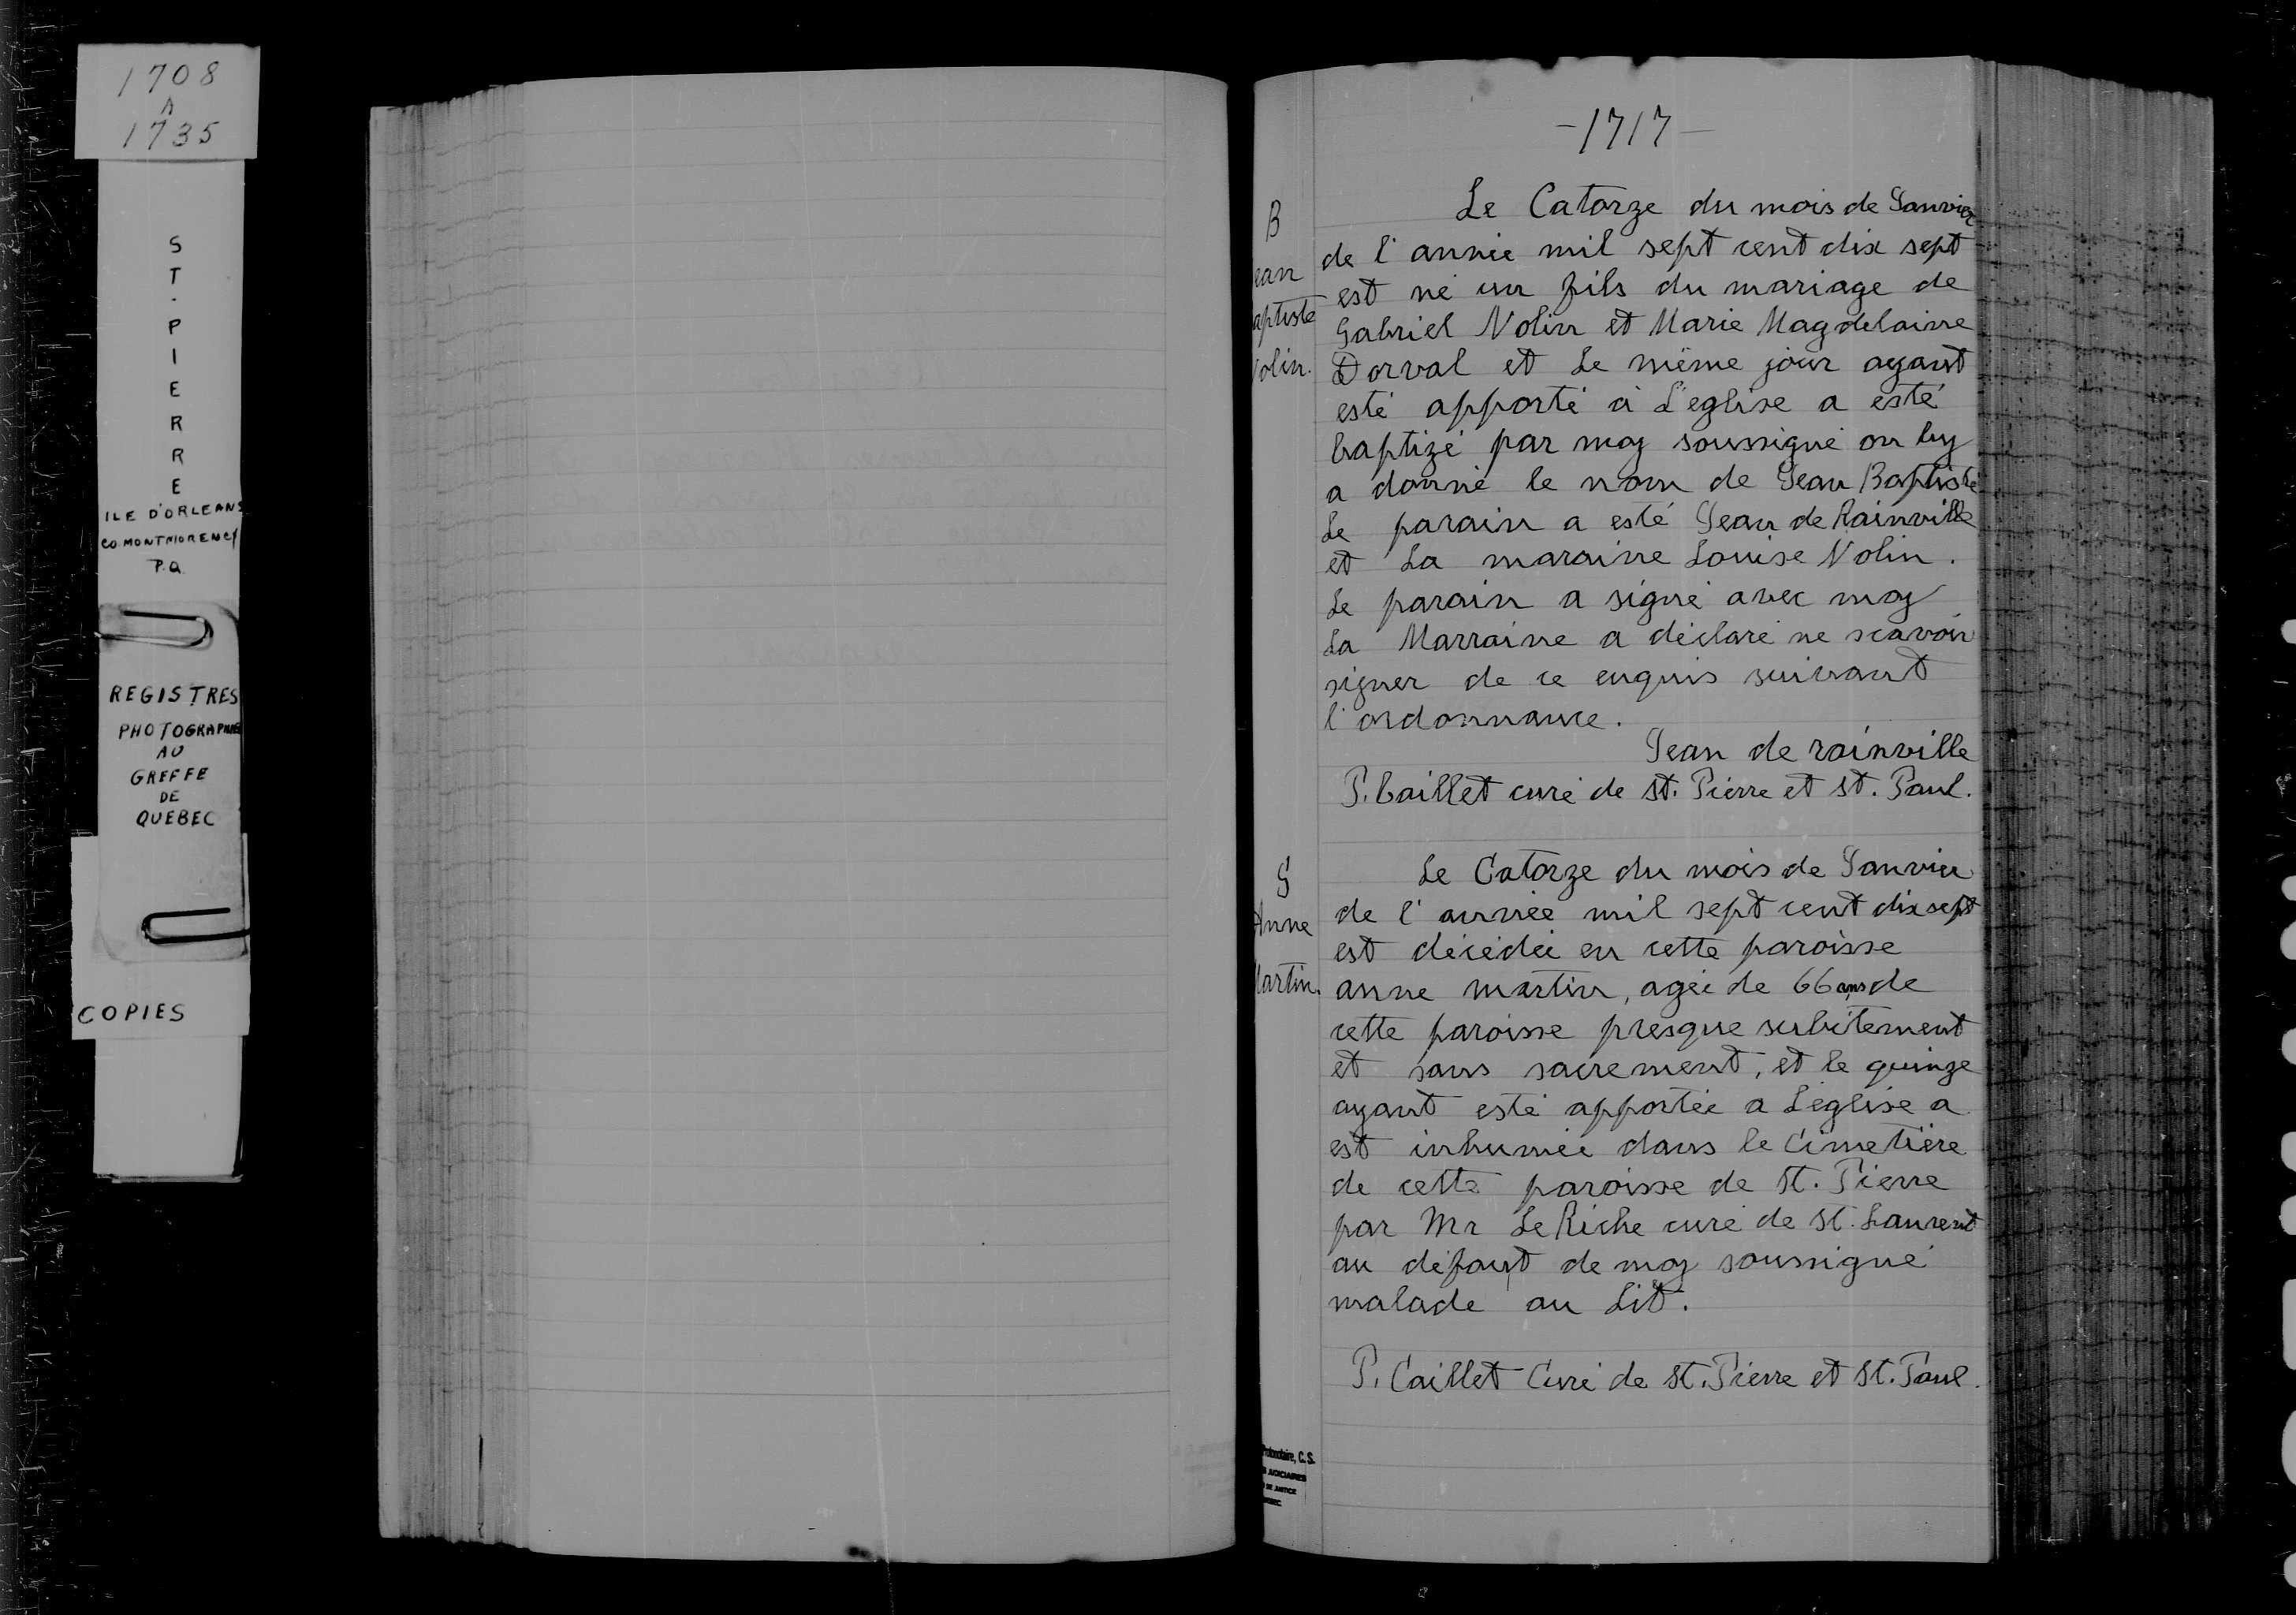 1708
A
1735
ST-PIERRE
ILE D'ORLEANS
CO. MONTMORENCY
P.Q.
REGISTRES
PHOTOGRAPHIES
AU
GREFFE
DE
QUEBEC
COPIES
-1717-
B
ean
aptiste
olin.
Le Catorze du mois de Janvier
de l'année mil sept cent dix sept
est né un fils du mariage de
Gabriel Nolin et Marie Magdelainne
Dorval et Le même jour ayant
esté apporté à L'eglise a esté
baptizé par moy soussigné on luy
a donné le nom de Jean Baptiste
Le parain a esté Jean de Rainville
et La maraine Louise Nolin.
Le parain a signé avec moy
La Marraine a déclaré ne scavoir
signer de ce enquis suivant
l'ordonnance.
Jean de rainville
P. Caillet curé de St. Pierre et St. Paul.
S
Anne
Martin.
Le Catorze du mois de Janvier
de l'année mil sept cent dix sept
est décédée en cette paroisse
anne martin, agée de 66 ans de
cette paroisse presque subitement
et sans sacrement, et le quinze
ayant esté apportée a L'église a
est inhumée dans le Cimetière
de cette paroisse de St. Pierre
par Mr Le Riche curé de St. Laurent
au défaut de moy soussigné
malade au Lit.
P. Caillet Curé de St. Pierre et St. Paul.